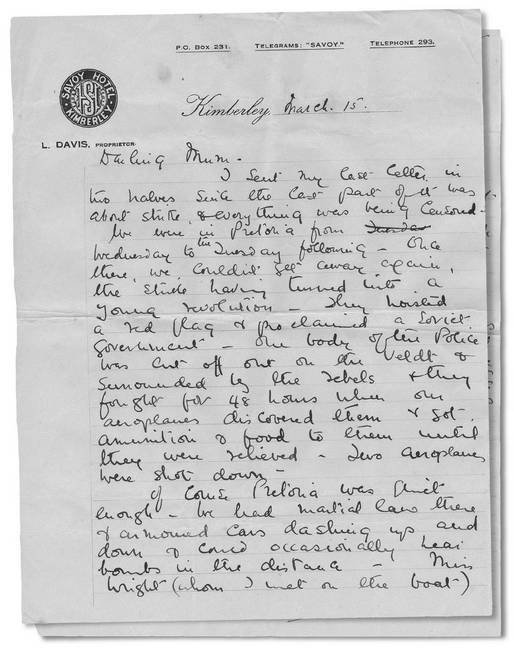 P.O. BOX 231. TELEGRAMS: "SAVOY." TELEPHONE 293.
SAVOY HOTEL
KIMBERLEY
Kimberley, March. 15.
L. DAVIS, PROPRIETOR.
Darling Mum -
I sent my last letter in
two halves since the last part of it was
about strike, & everything was being censored -
We were in Pretoria from Tuesday
Wednesday to the Tuesday following - Once
there, we couldn't get away again,
the strike having turned into a
young revolution - They hoisted
a red flag & proclaimed a Soviet
Government - One body of the Police
was cut off out on the Veldt &
surrounded by the rebels & they
fought for 48 hours when our
aeroplanes discovered them & got
amunition & food to them until
they were relieved - Two aeroplanes
were shot down -
Of course Pretoria was quiet
enough - We had martial law there
& armoured cars dashing up and
down & could occasionally hear
bombs in the distance - Miss
Wright (whom I met on the boat)